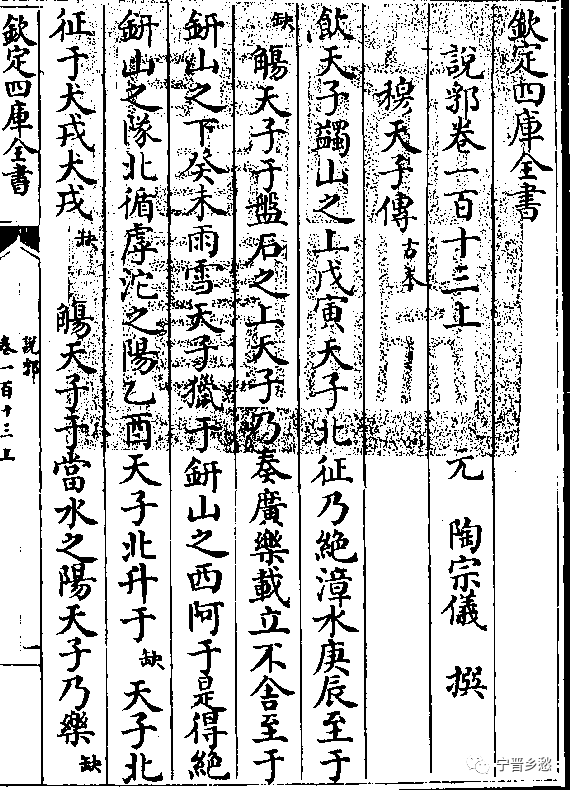 欽定四庫全書
說郛卷一百十三上 元 陶宗儀 撰
穆天子傳 古本
飲天子蠲山之上戊寅天子北征乃絶漳水庚辰至于
缺 觴天子于盤石之上天子乃奏廣樂載立不舍至于
鈃山之下癸未雨雪天子獵于鈃山之西阿于是得絶
鈃山之隊北循虖沱之陽乙酉天子北升于 缺 天子北
征于犬戎犬戎 缺 觴天子于當水之陽天子乃樂 缺
欽定四庫全書
說郛
卷一百十三上
宁晋乡愁